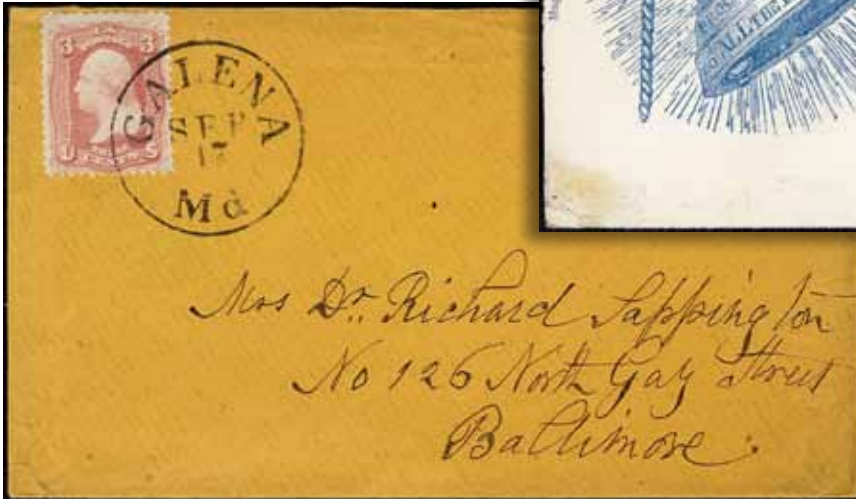 3 3
GALENA
SEP
17
Md
Mrs Dr. Richard Sappington
No 126 North Gay Street
Baltimore.
ALL THE